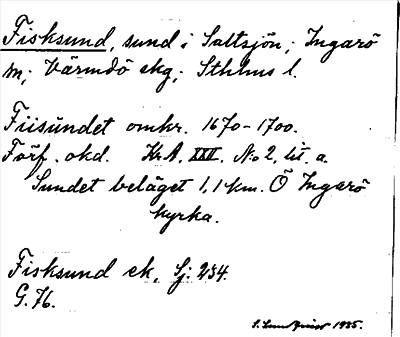 Fisksund, sund i Saltsjön; Ingarö
sn; Värmdö skg; Sthlms l.
Fiisundet omkr. 1670-1700.
Förf. okd. Kr.A. XXII. No 2, lit. a.
Sundet beläget 1,1 km. Ö Ingarö
kyrka.
Fisksund ek. Sj. 234.
G. 76.
1935.